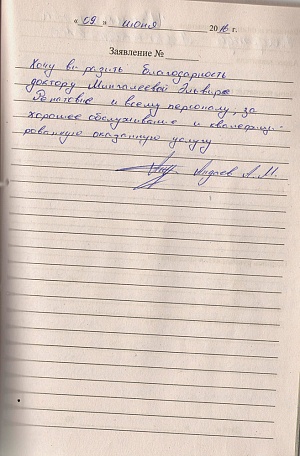 « 09 » июня 2016 г.
Заявление №
Хочу выразить благодарность
доктору Мингалеевой Эльвире
Ренатовне и всему персоналу, за
хорошее обслуживание и квалифици-
рованную оказанную услугу
А. М.